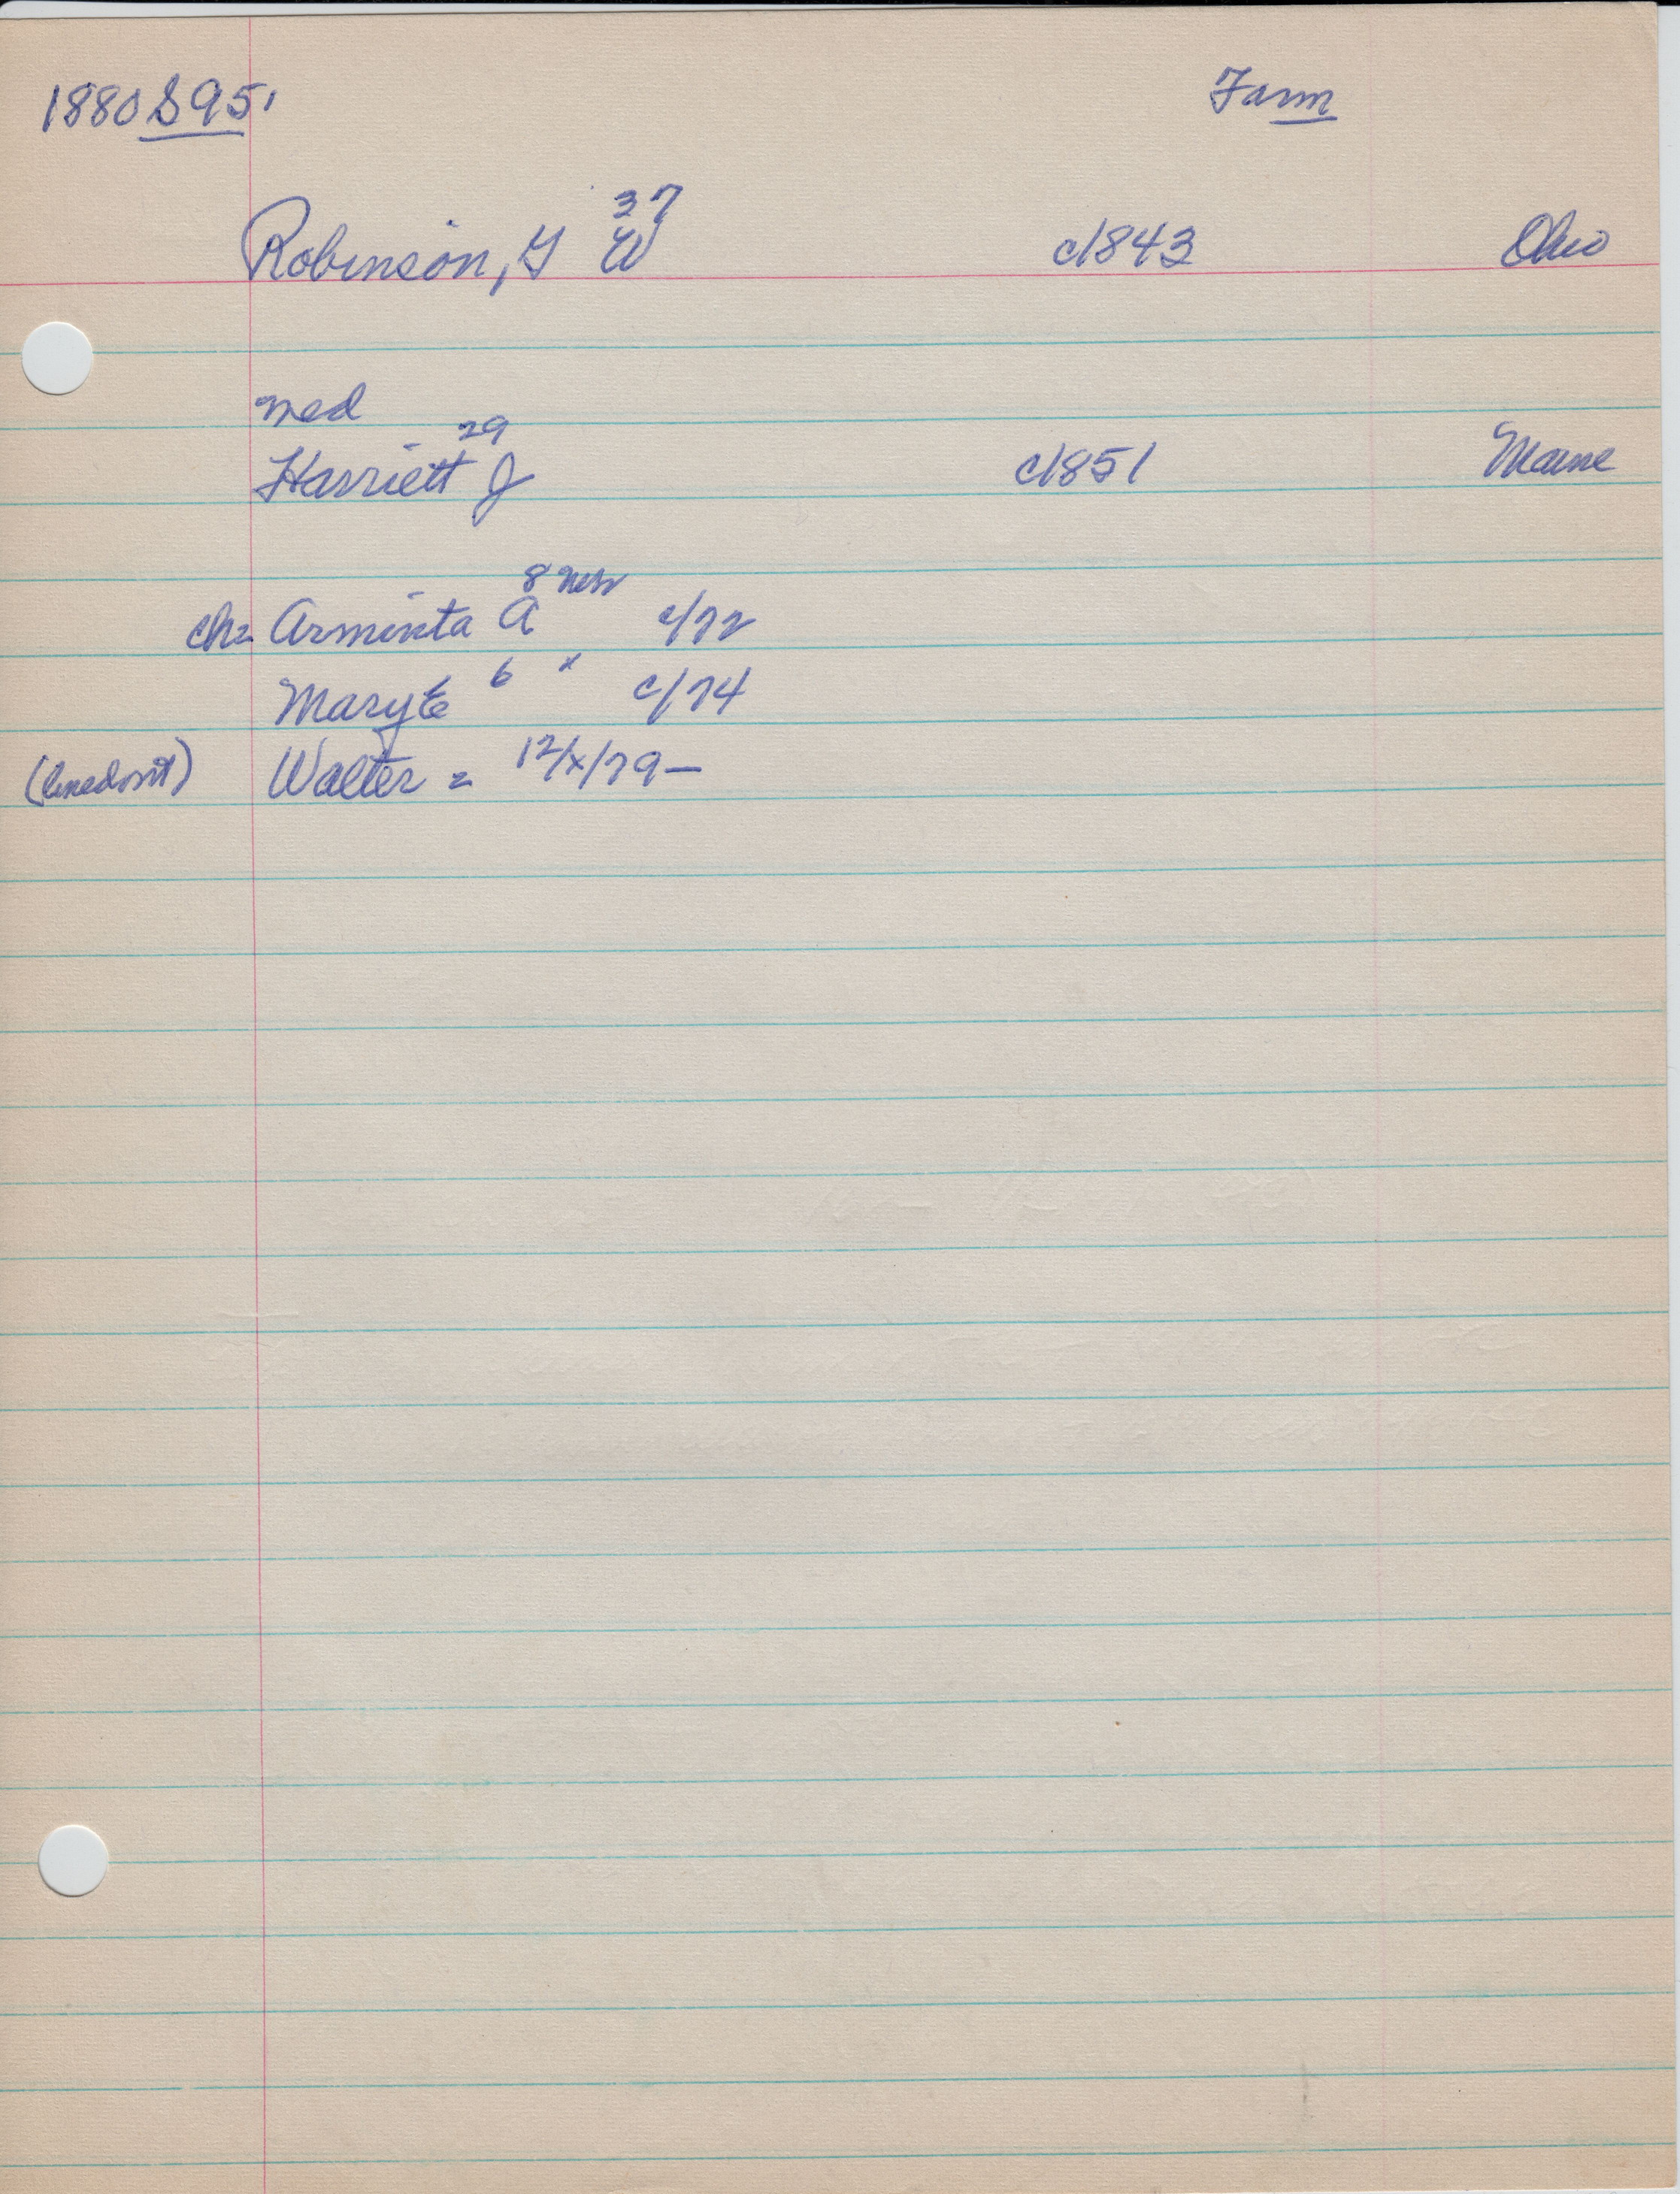 1880 S95, Farm
37
Robinson, G W c1843 Ohio
med
29
Harriett J c1851 Maine
8 Nebr
ch= Arminta A c/72
Mary E 6 " c/74
(lined out) Walter = 12/x/79—